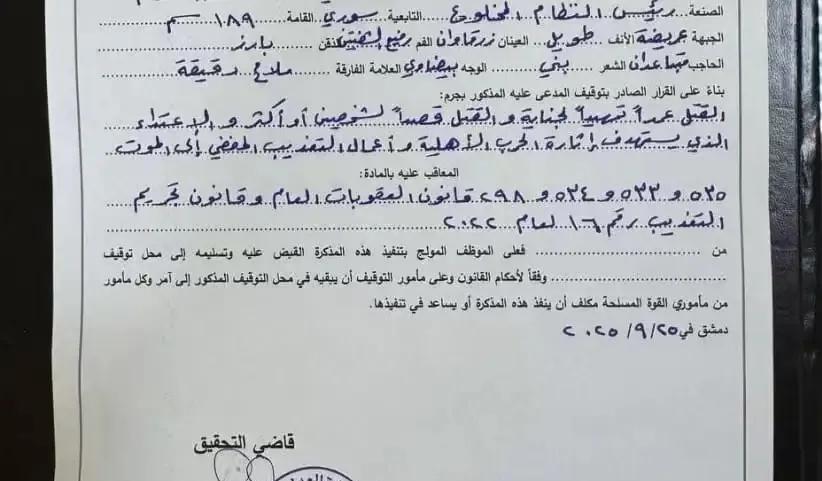 الصنعة... رئيس النظام المخلوع... التابعية... سوري... القامة... ١٨٩ سم
الجبهة عريضة الأنف... طويل... العينان زرقاوان الفم رفيع الشفتين الذقن... بارز
الحاجب متباعدان الشعر... بني... الوجه بيضاوي العلامة الفارقة... ملامح دقيقة
بناءً على القرار الصادر بتوقيف المدعى عليه المذكور بجرم:
القتل عمداً تمهيداً لجناية و القتل قصداً لشخصين أو أكثر و الإعتداء
الذي يستهدف إثارة الحرب الأهلية و أعمال التعذيب المفضي إلى الموت
المعاقب عليه بالمادة:
٥٣٥ و ٥٣٣ و ٥٣٤ و ٢٩٨ قانون العقوبات العام و قانون تجريم
التعذيب رقم ١٦ لعام ٢٠٢٢
من ... فعلى الموظف المولج بتنفيذ هذه المذكرة القبض عليه وتسليمه إلى محل توقيف
... وفقاً لأحكام القانون وعلى مأمور التوقيف أن يبقيه في محل التوقيف المذكور إلى آمر وكل مأمور
من مأموري القوة المسلحة مكلف أن ينفذ هذه المذكرة أو يساعد في تنفيذها.
دمشق في ٢٠٢٥/٩/٢٥
قاضي التحقيق